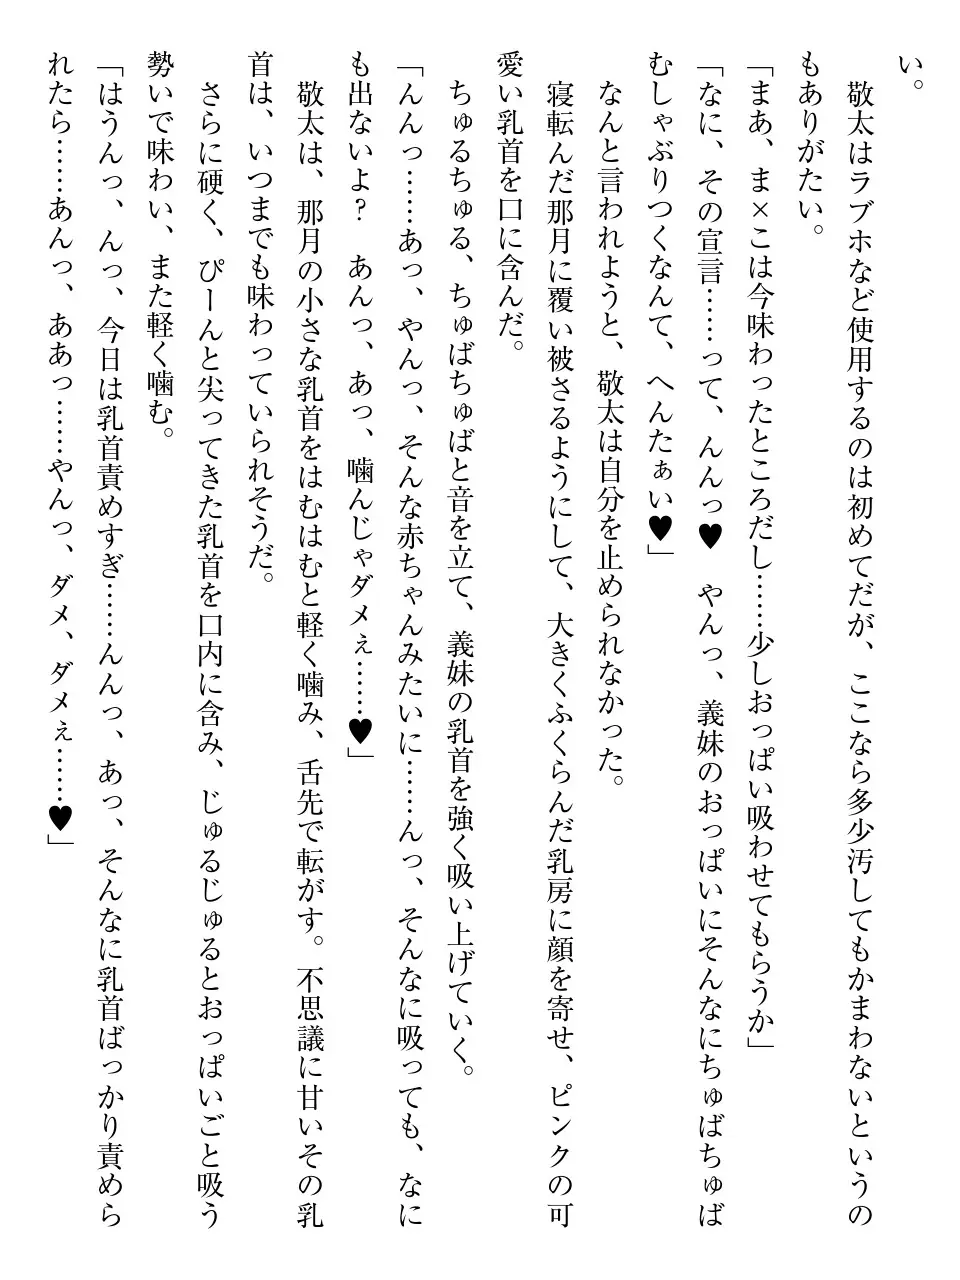 い。
　敬太はラブホなど使用するのは初めてだが、ここなら多少汚してもかまわないというの
もありがたい。
「まあ、ま×こは今味わったところだし……少しおっぱい吸わせてもらうか」
「なに、その宣言……って、んんっ♥　やんっ、義妹のおっぱいにそんなにちゅばちゅば
むしゃぶりつくなんて、へんたぁい♥」
　なんと言われようと、敬太は自分を止められなかった。
　寝転んだ那月に覆い被さるようにして、大きくふくらんだ乳房に顔を寄せ、ピンクの可
愛い乳首を口に含んだ。
　ちゅるちゅる、ちゅばちゅばと音を立て、義妹の乳首を強く吸い上げていく。
「んんっ……あっ、やんっ、そんな赤ちゃんみたいに……んっ、そんなに吸っても、なに
も出ないよ?　あんっ、あっ、噛んじゃダメぇ……♥」
　敬太は、那月の小さな乳首をはむはむと軽く噛み、舌先で転がす。不思議に甘いその乳
首は、いつまでも味わっていられそうだ。
　さらに硬く、ぴーんと尖ってきた乳首を口内に含み、じゅるじゅるとおっぱいごと吸う
勢いで味わい、また軽く噛む。
「はうんっ、んっ、今日は乳首責めすぎ……んんっ、あっ、そんなに乳首ばっかり責めら
れたら……あんっ、ああっ……やんっ、ダメ、ダメぇ……♥」